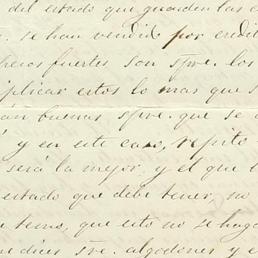 del estado que guarden las c
se han vendido por credit
heros fuertes son spre. los
plicar estos lo mas que s
án buenas, spre. que se
y en este caso, repito
será la mejor, y el que l
estado que debe tener, no
teme, que esto no se haga
me dices sre. algodones y e